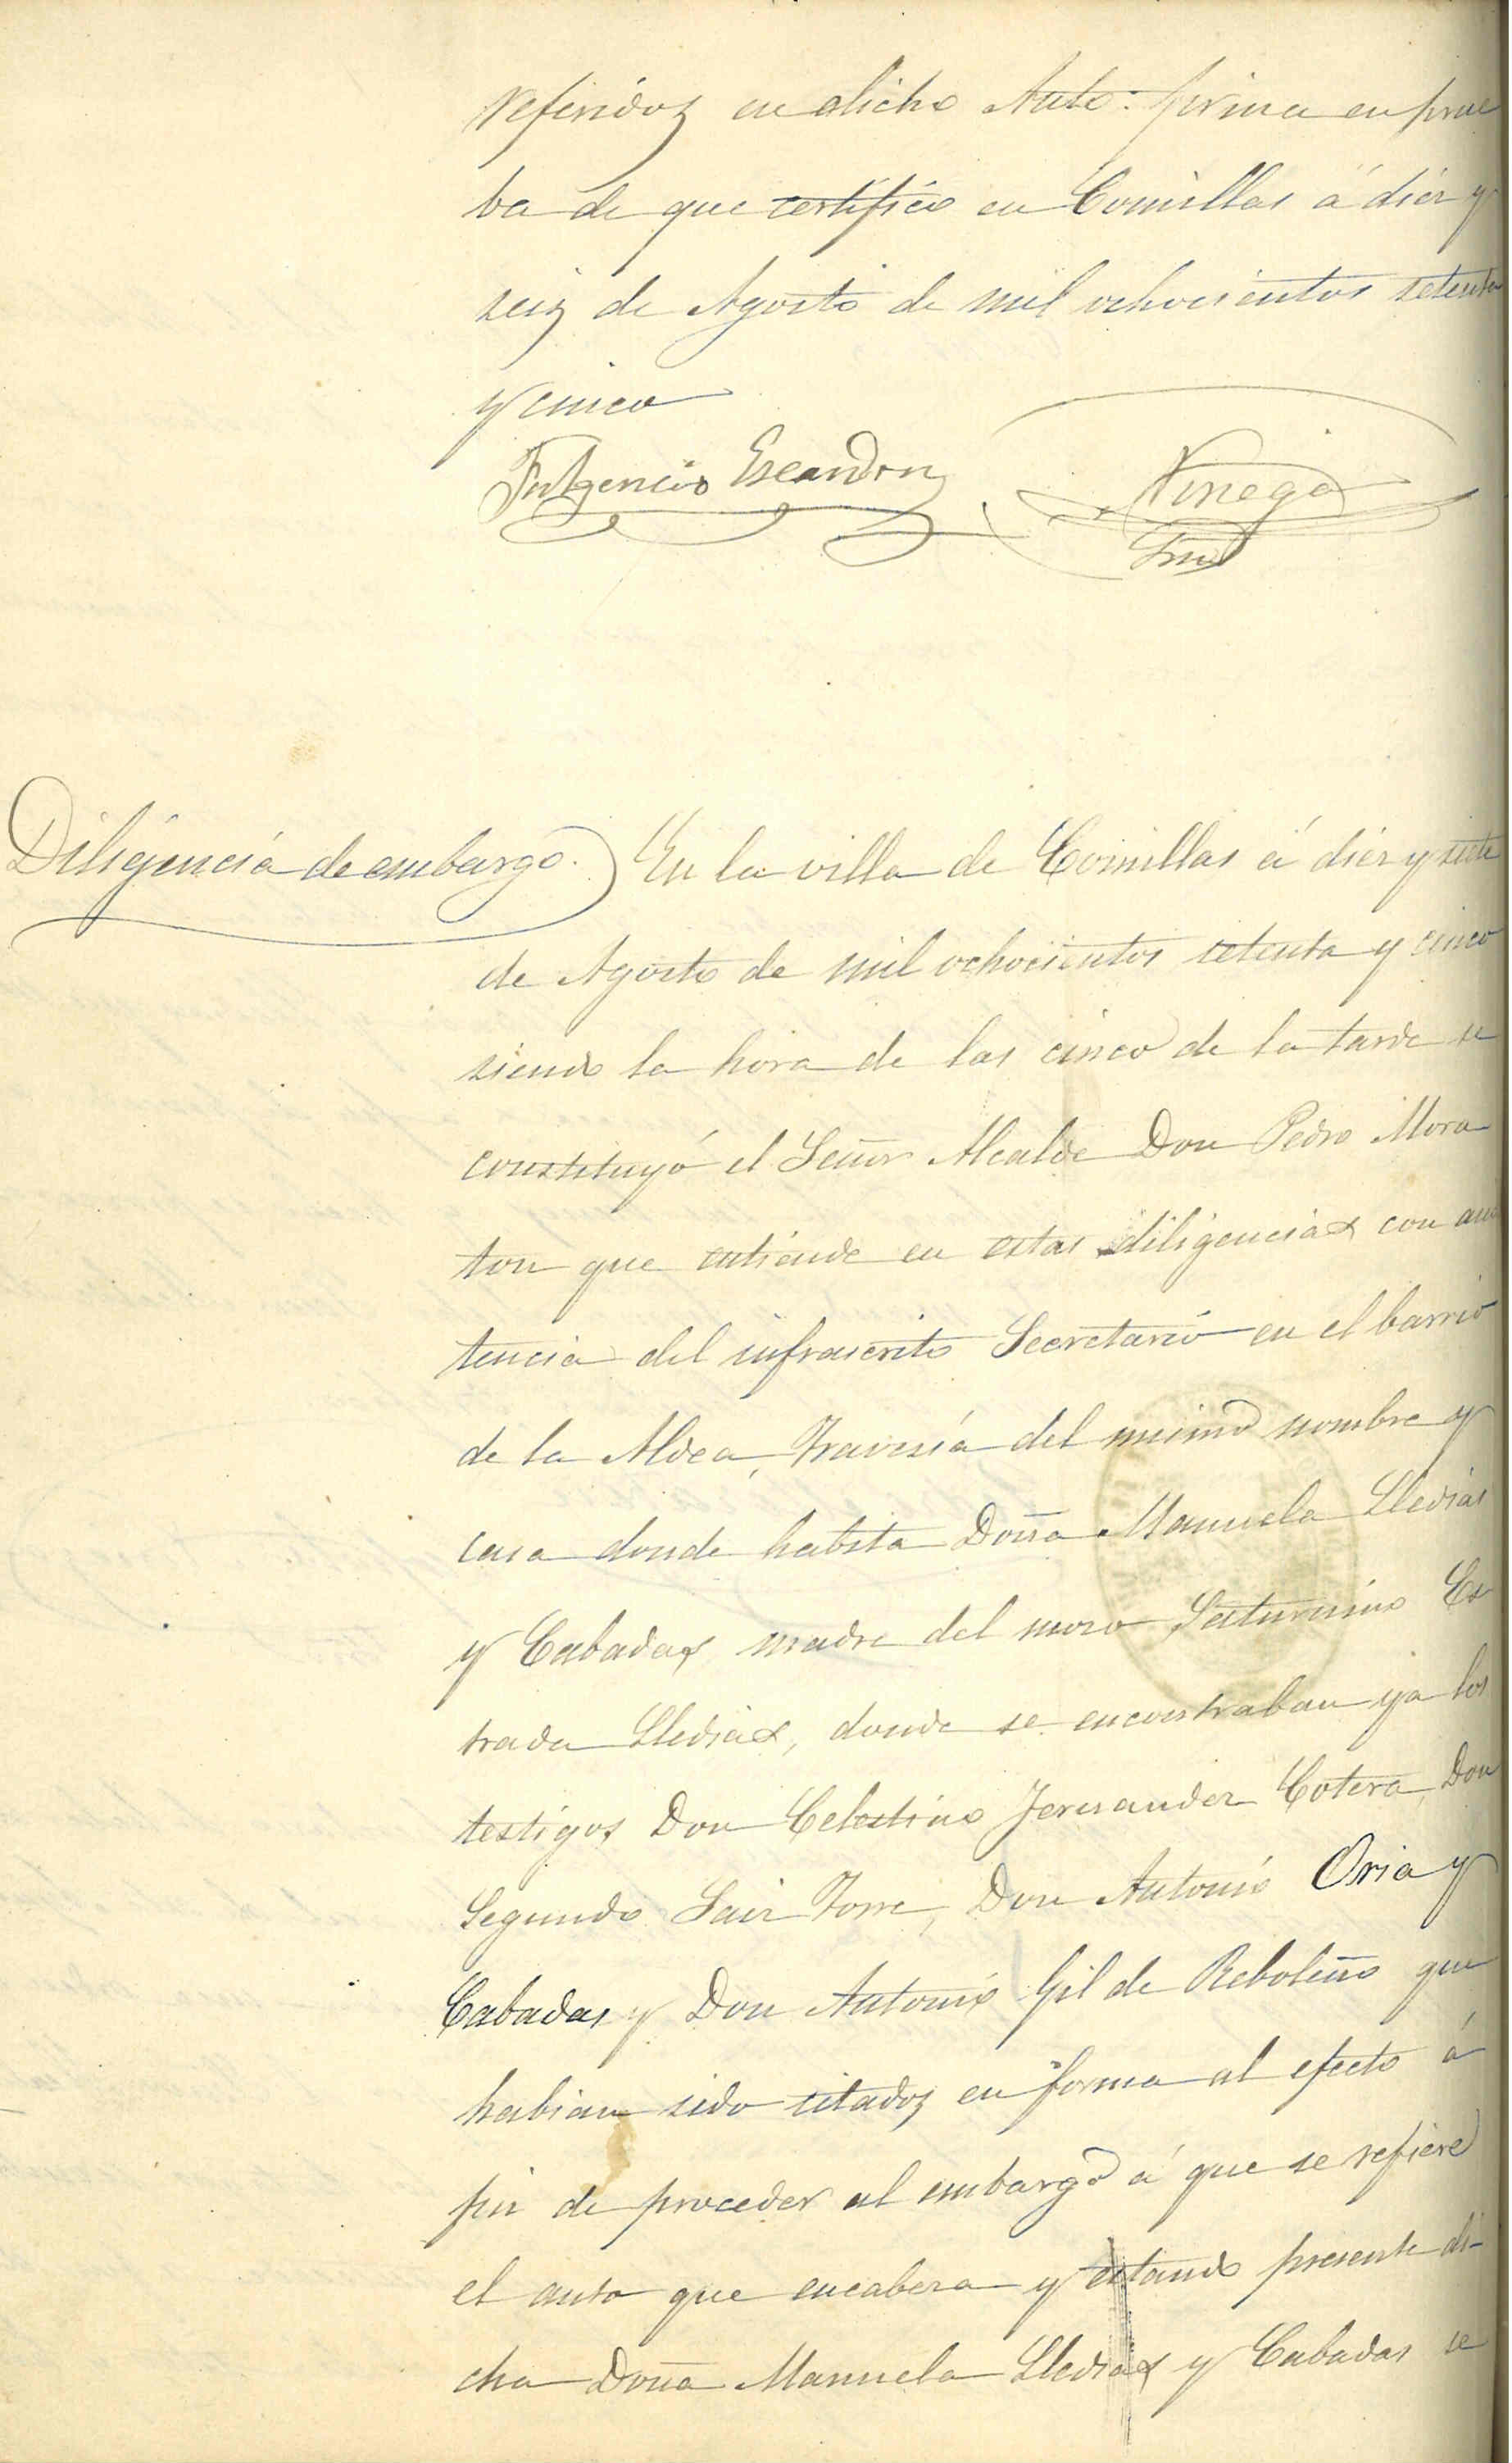 referidos en dicho Auto: firma en prue
ba de que certifico en Comillas á diez y
seis de Agosto de mil ochocientos setenta
y cinco
Fulgencio Escandon
Noriega
Srio
Diligencia de embargo.) En la villa de Comillas á diez y siete
de Agosto de mil ochocientos setenta y cinco
siendo la hora de las cinco de la tarde se
constituyó el Señor Alcalde Don Pedro Mora
ton que entiende en estas diligencias con asis
tencia del infrascrito Secretario en el barrio
de la Aldea, Travesía del mismo nombre y
casa donde habita Doña Manuela Lledías
y Cabadas madre del mozo Saturnino Es
trada Lledias, donde se encontraban ya los
testigos Don Celestino Fernandez Cotera, Don
Segundo Saiz Torre, Don Antonio Oria y
Cabadas y Don Antonio Gil de Reboleño que
habian sido citados en forma al efecto á
fin de proceder al embargo á que se refiere
el auto que encabeza y estando presente di-
cha Doña Manuela Lledias y Cabadas se